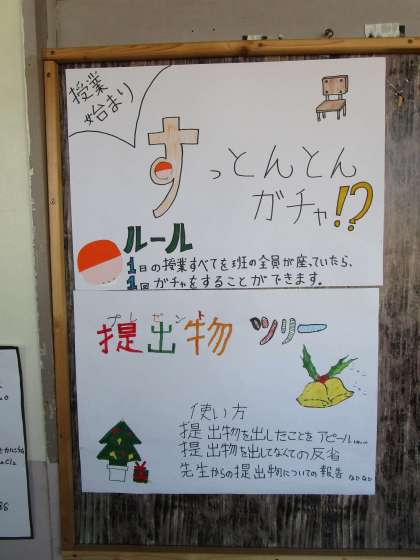 授業
始まり
すっとんとん
ガチャ!?
ルール
1日の授業すべてを班の全員が座っていたら、
1回ガチャをすることができます。
プレゼント
提出物ツリー
使い方
提出物を出したことをアピール
提出物を出してなくての反省
先生からの提出物についての報告 などなど